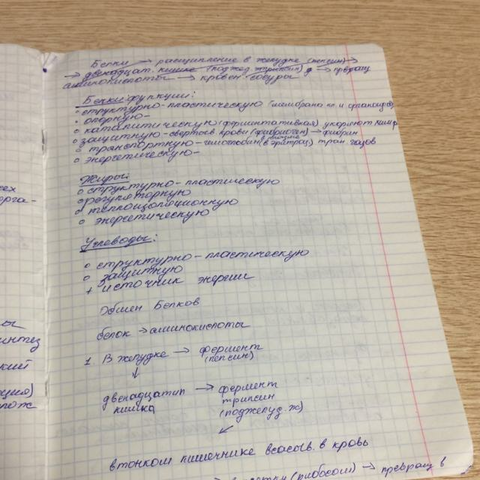 Белки → расщипление в желудке (пепсин) →
→ двенадцат. кишке (поджел трипсин) → превращ
аминокислоты → кровен сосуды
Белки функции:
структурно-пластическую (мембрана кл и органоидов)
опорную-
каталитическую (ферментативная) ускоряют хим р
защитную-свёртыв крови (фибриоген) → фибрин
транспортную-гемоглобин (в эритроц) тран газов
энергетическую-
Жиры:
структурно-пластическую
регуляторную
теплоизоляционную
энергетическую
Углеводы:
структурно-пластическую
защитную
+ источник энергии
Обмен Белков
белок → аминокислоты
1. В желудке → фермент
(пепсин)
двенадцатип → фермент
кишка трипсин
(поджелуд. ж)
в тонком кишечнике всасыв. в кровь
(рибосом) → превращ в
ех
ы
интез
кий